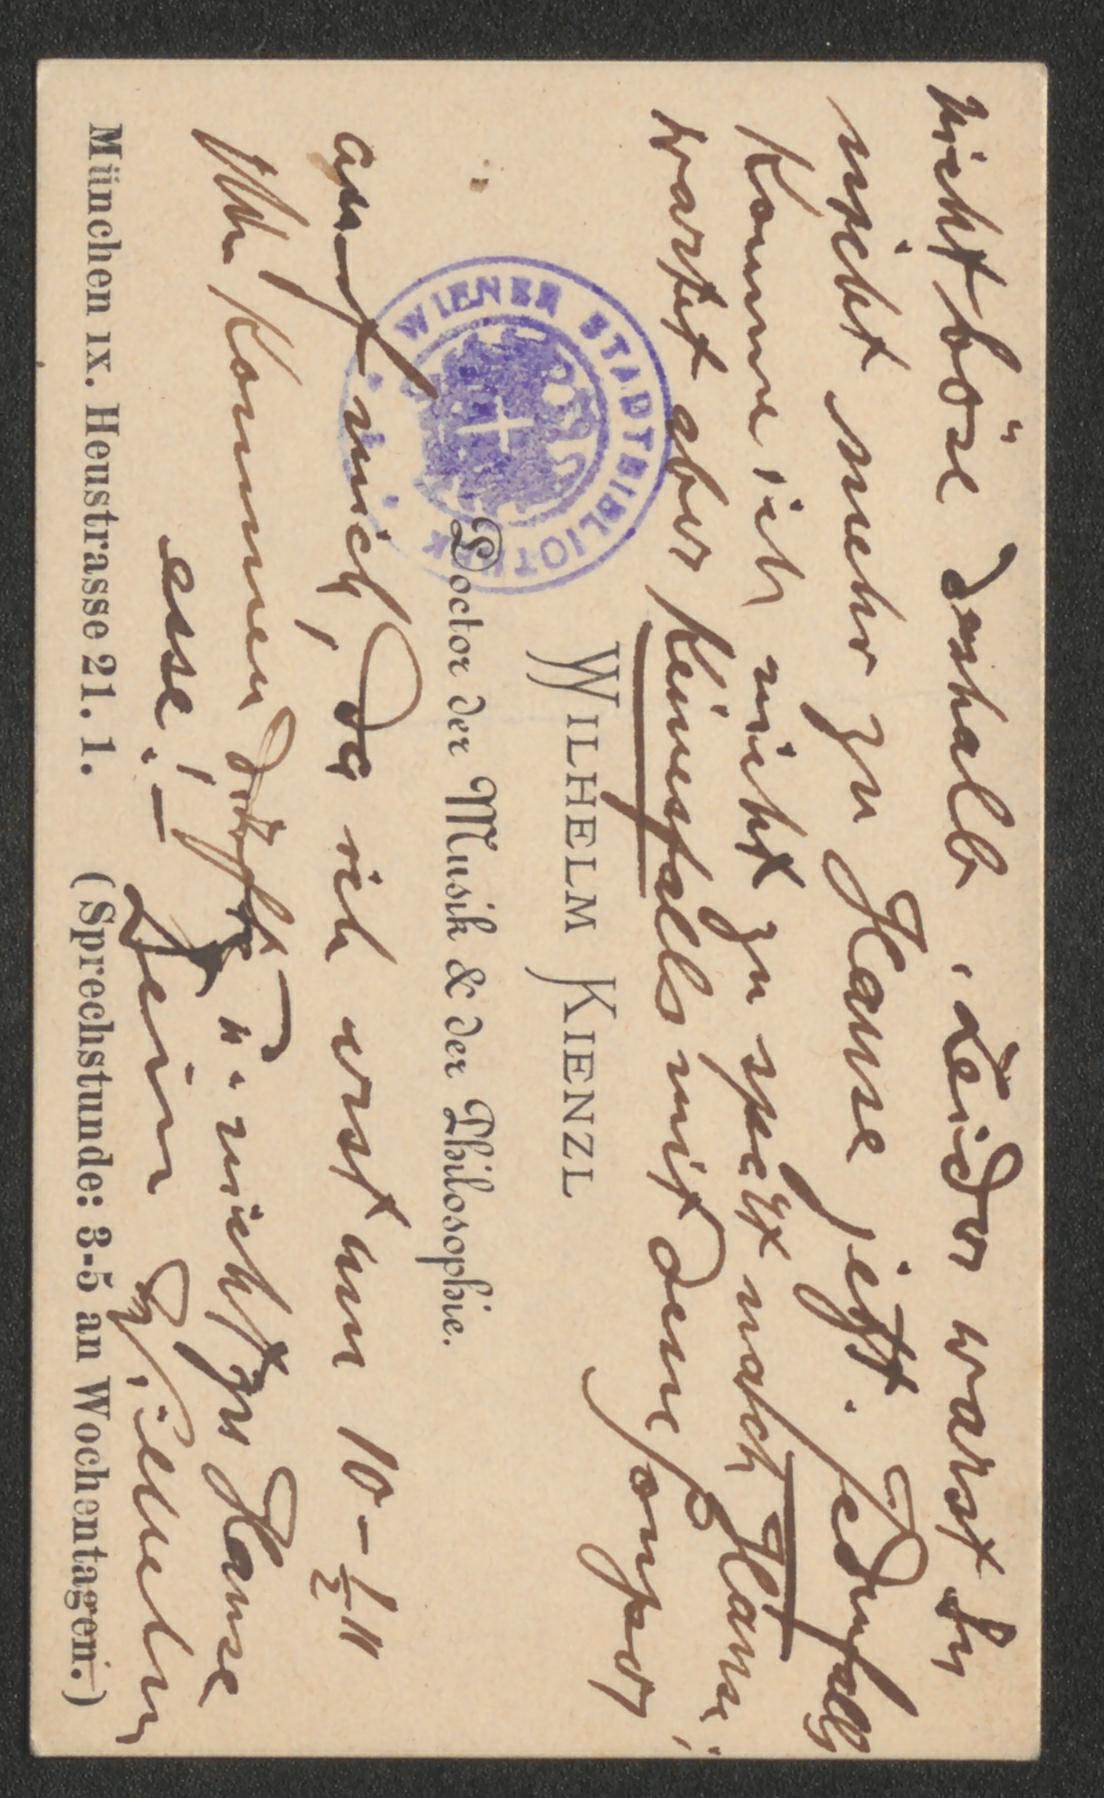 nicht böse deshalb, Leider warst Du
nicht mehr zu Hause jetzt. Jedenfalls
komme ich nicht zu spät nach Hause;
wartet aber keinesfalls mit dem souper
WILHELM KIENZL
Doctor der Musik & der Philosophie.
auf mich, da ich erst um 10-½11
Uhr kommen dürfte u. nicht zu Hause
esse! –
Dein Wilhelm
München IX. Heustrasse 21. 1. (Sprechstunde: 3-5 an Wochentagen.)
WIENER STADTBIBLIOTHEK